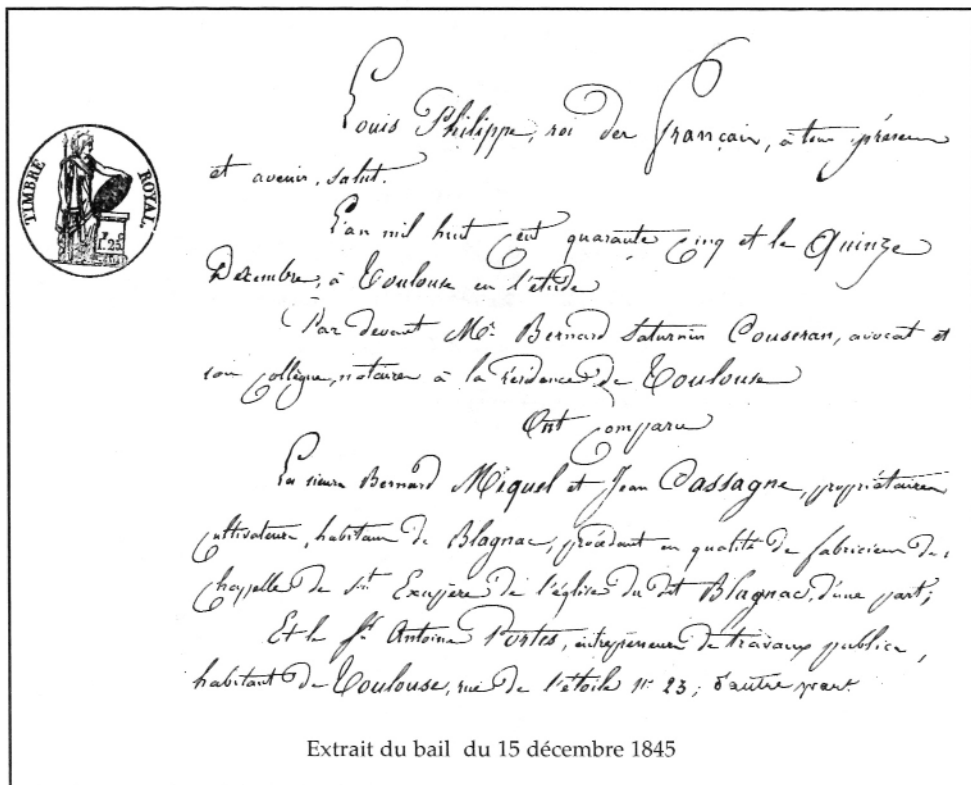 Louis Philippe, roi des Français, à tous présens
et avenir, salut.
TIMBRE ROYAL
L'an mil huit cent quarante cinq et le Quinze
Décembre, à Toulouse en l'étude
Par devant Me Bernard Saturnin Couseran, avocat et
son collègue, notaires à la résidence de Toulouse
Ont Comparu
Les sieurs Bernard Miquel et Jean Cassagne, propriétaires
cultivateurs, habitans de Blagnac, procédant en qualité de fabriciens de
chapelle de St Exupère de l'église du dit Blagnac, d'une part;
Et le Sr Antoine Portes, entrepreneur de travaux publics,
habitant de Toulouse, rue de l'étoile no 23; d'autre part.
Extrait du bail du 15 décembre 1845